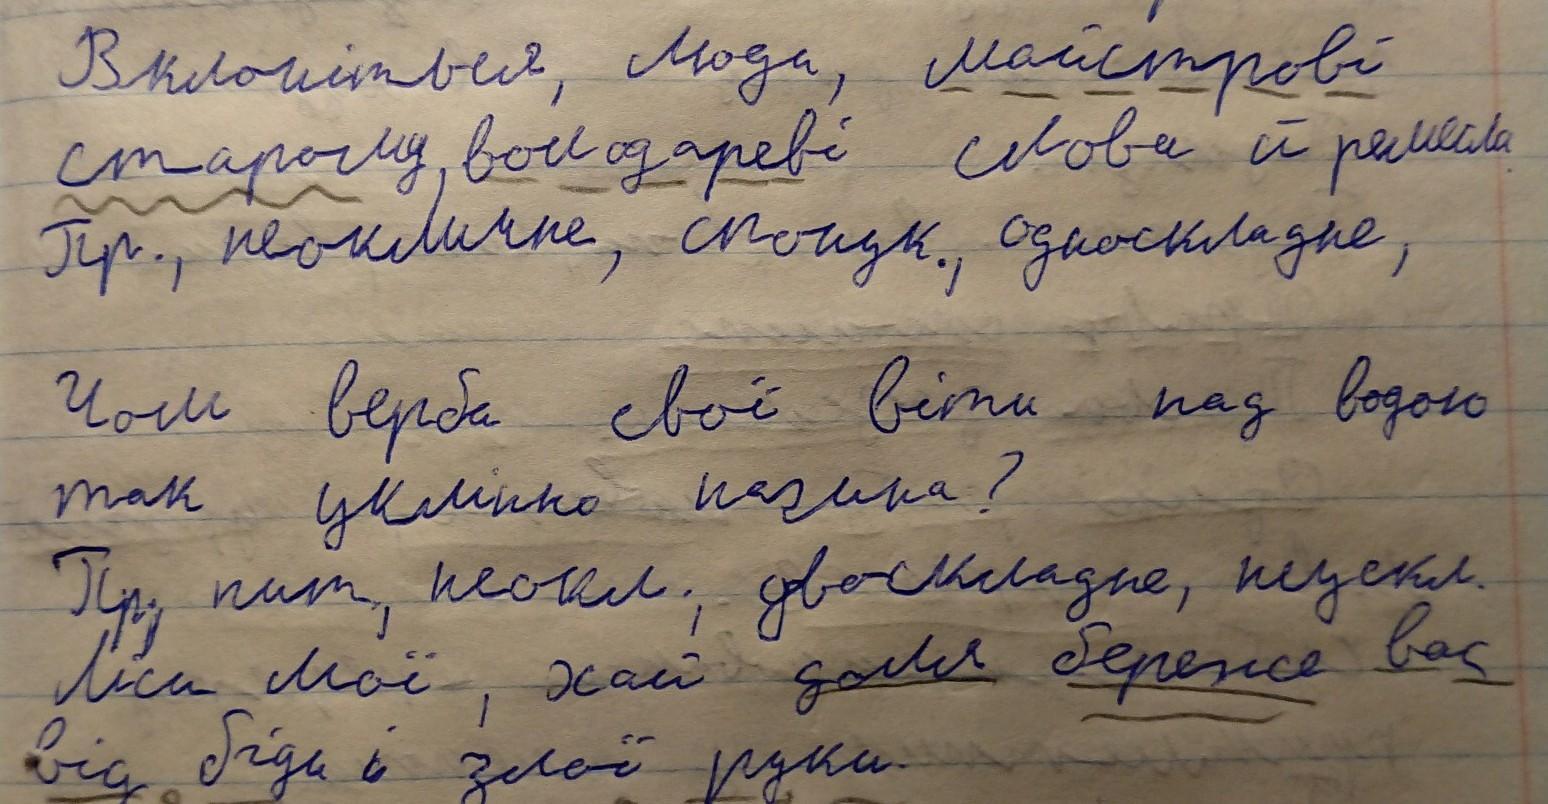 Вклоніться, люди, майстрові
старому, володареві слова й ремесла
Пр., неокличне, спонук., односкладне,
Чом верба свої віти над водою
так уклінно нагина?
Пр., пит., неокл., двоскладне, неускл.
Ліси мої, хай доля береже вас
від біди і злої руки.